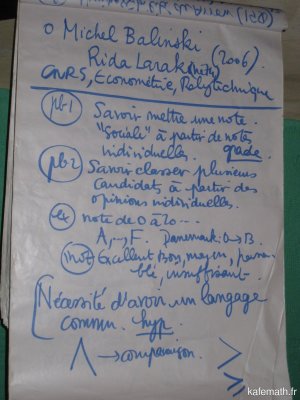 o Michel Balinski
Rida Laraki (2006).
CNRS, Econométrie, Polytechnique
pb1 Savoir mettre une note
"sociale" à partir de notes
individuelles. grade.
pb2 Savoir classer plusieurs
candidats à partir des
opinions individuelles.
ex note de 0 à 20 ...
A, .., F. Danemark: 0 → B.
mot Excellent Bon, moyen, passa-
ble, insuffisant.
Nécessité d'avoir un langage
commun. hyp
→ comparaison.
kafemath.fr